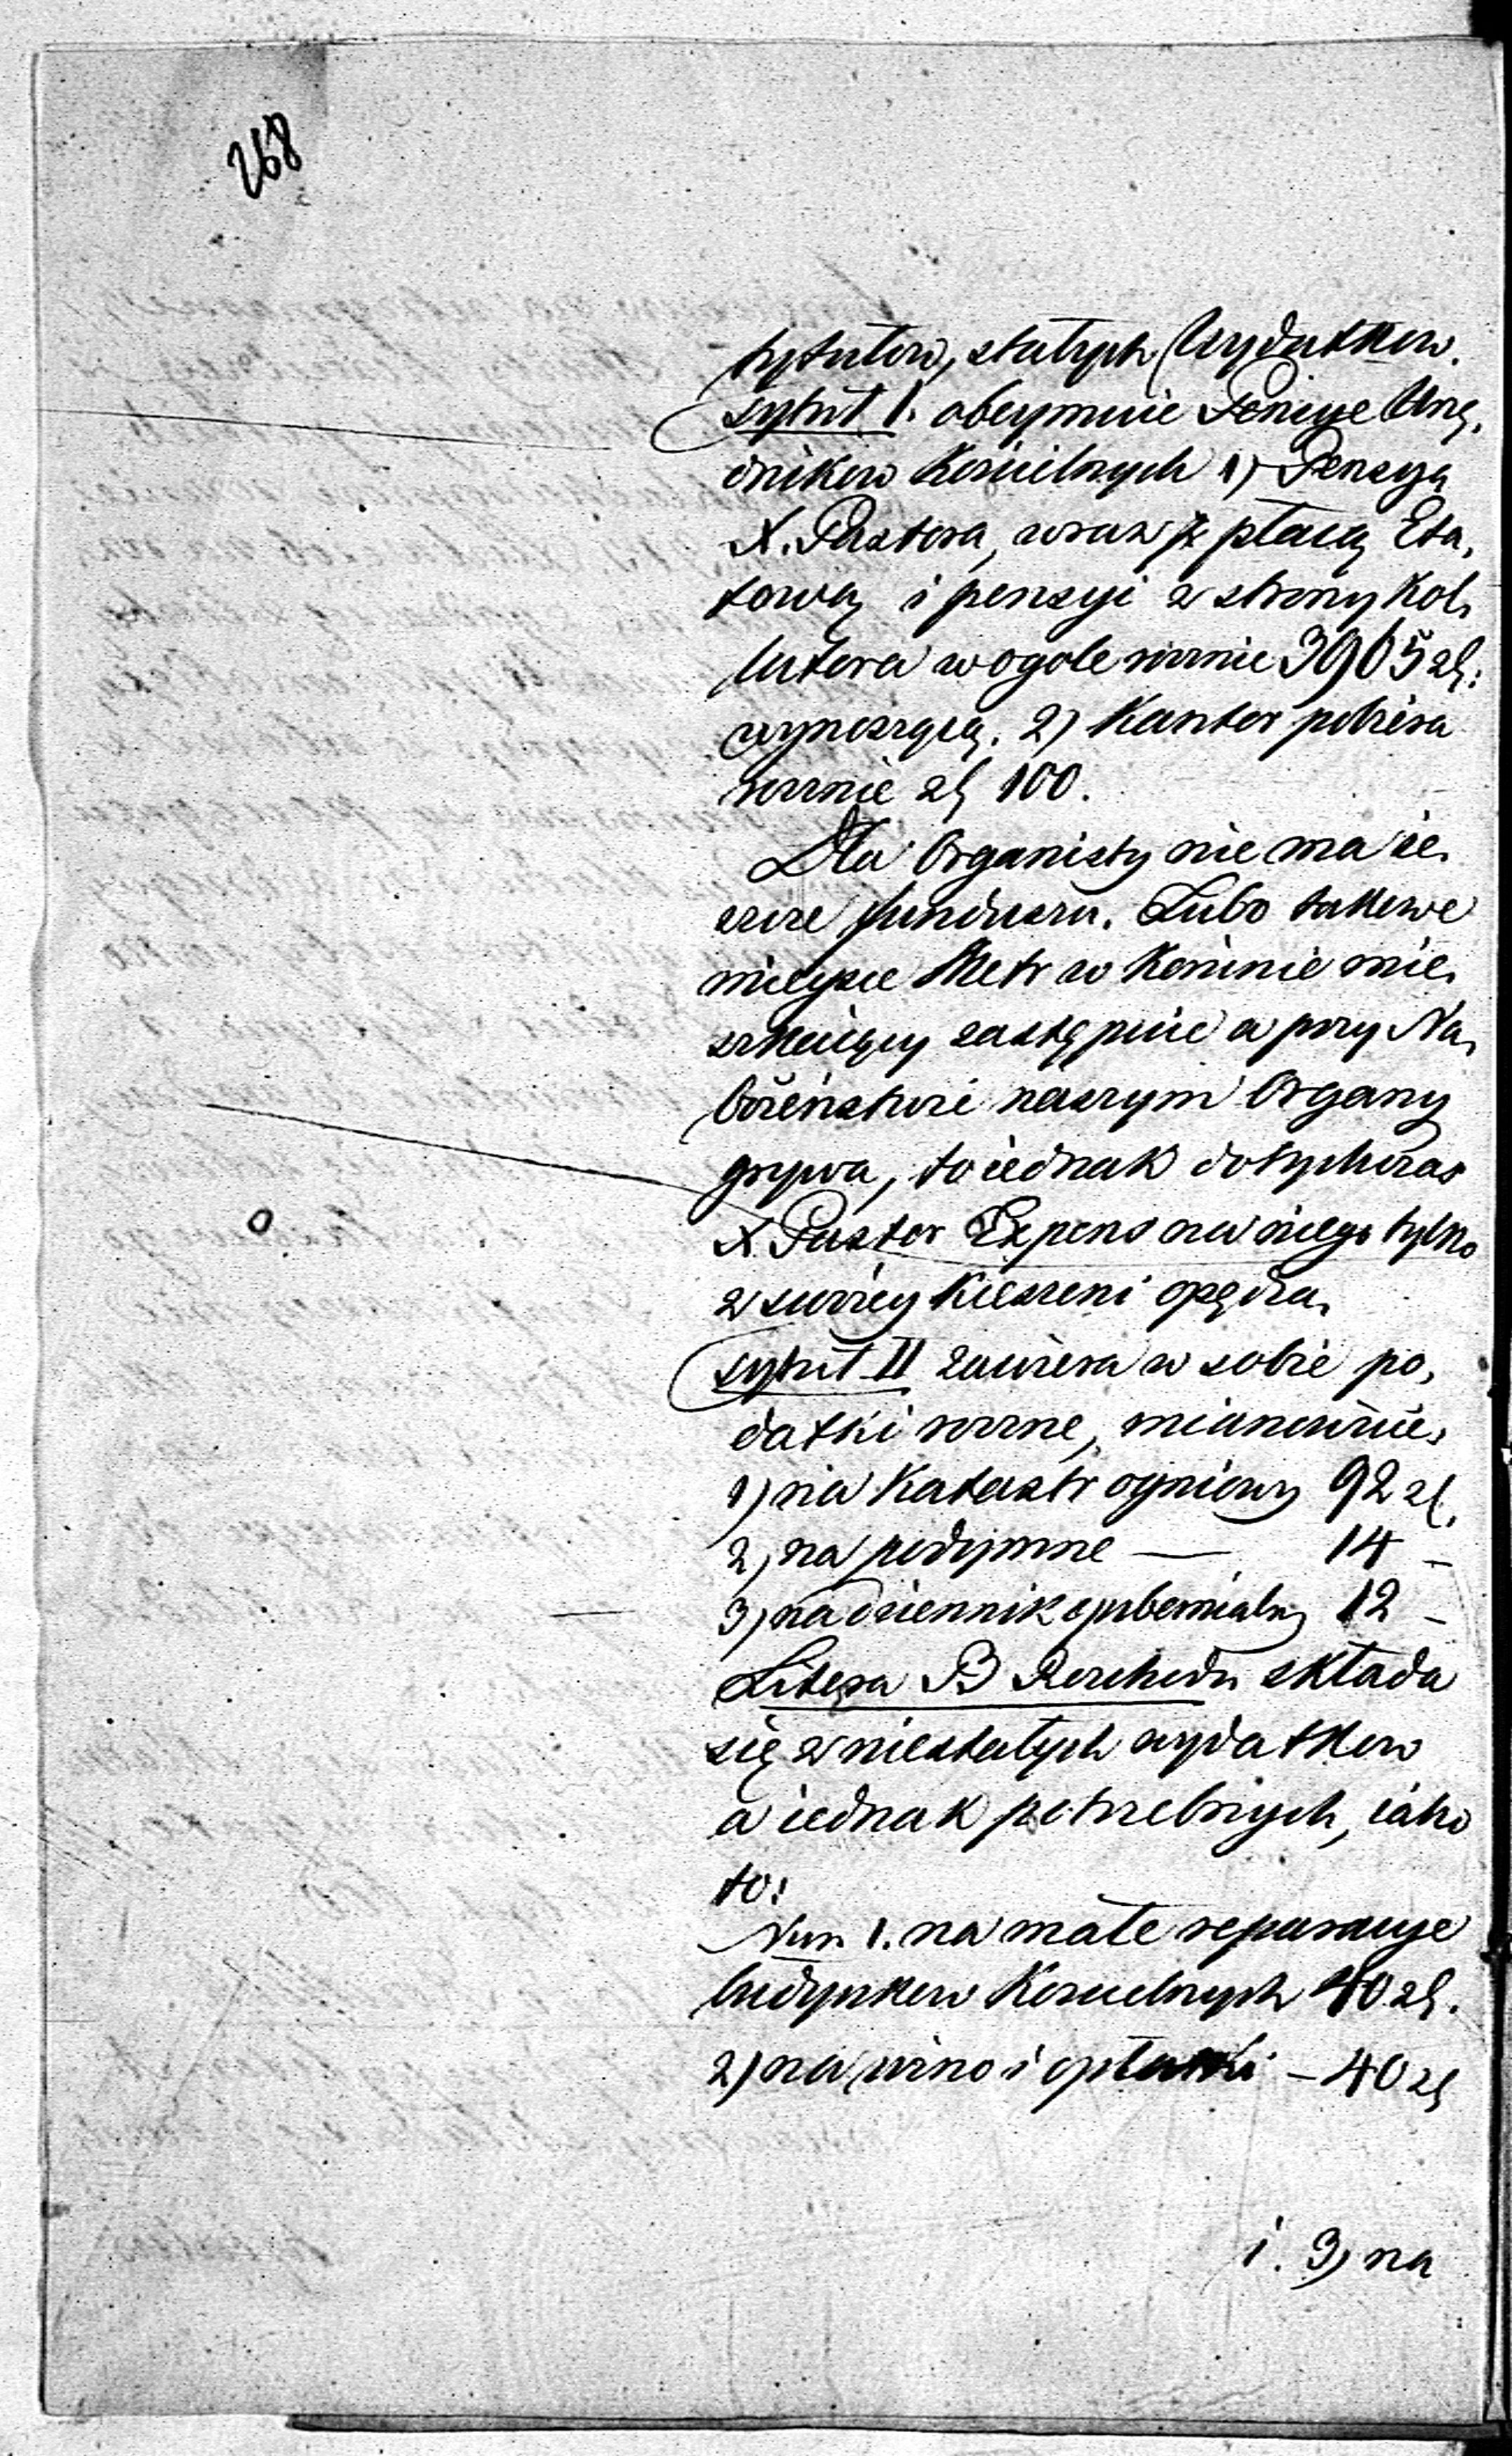 268
tytułow, stałych Wydatkow.
Tytuł I. obeymuie Pensye Urzę,
dnikow Kościelnych 1) Pensyą
X. Pastora, wraz z płacą Eta,
tową i pensyi z strony Kol,
latora w ogole rocznie 3965 zł:
wynoszącą. 2) Kantor pobiera
rocznie zł 100.
Dla Organisty nie ma ie,
szcze funduszu. Lubo takowe
mieysce Metr w Koninie mie,
szkaiący zastępuie a przy Na,
bożeństwie naszym Organy
grywa, to iednak dotychczas
X. Pastor Expens na niego tylko
z swoiey kieszeni opędza,
Tytuł II zawiera w sobie po,
datki roczne, mianowicie,
1) na Katastr ogniowy 92 zł.
2) na podymne — 14 –
3) na dziennik gubernialny 12 –
Litera B Rozchodu składa
się z niestałych wydatkow
a iednak potrzebnych, iako
to:
Num 1. na małe reparacye
budynkow Koscielnych 40 zł.
2) na wino i opłatki – 40 zł
i. 3) na